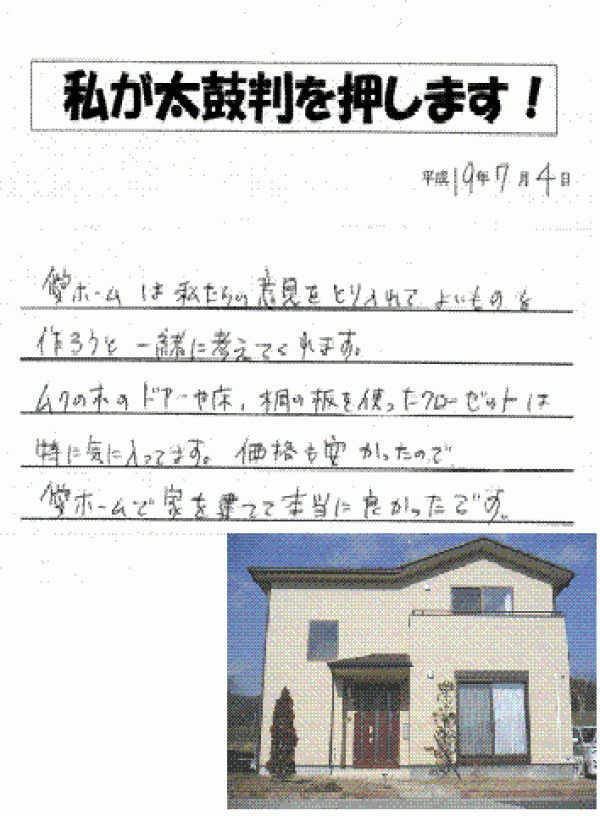 私が太鼓判を押します！
平成19年7月4日
愛ホームは私たちの意見をとり入れて よいものを
作ろうと一緒に考えてくれます。
ムクの木のドアーや床、桐の板を使ったクローゼットは
特に気に入ってます。価格も安かったので
愛ホームで家を建てて本当に良かったです。